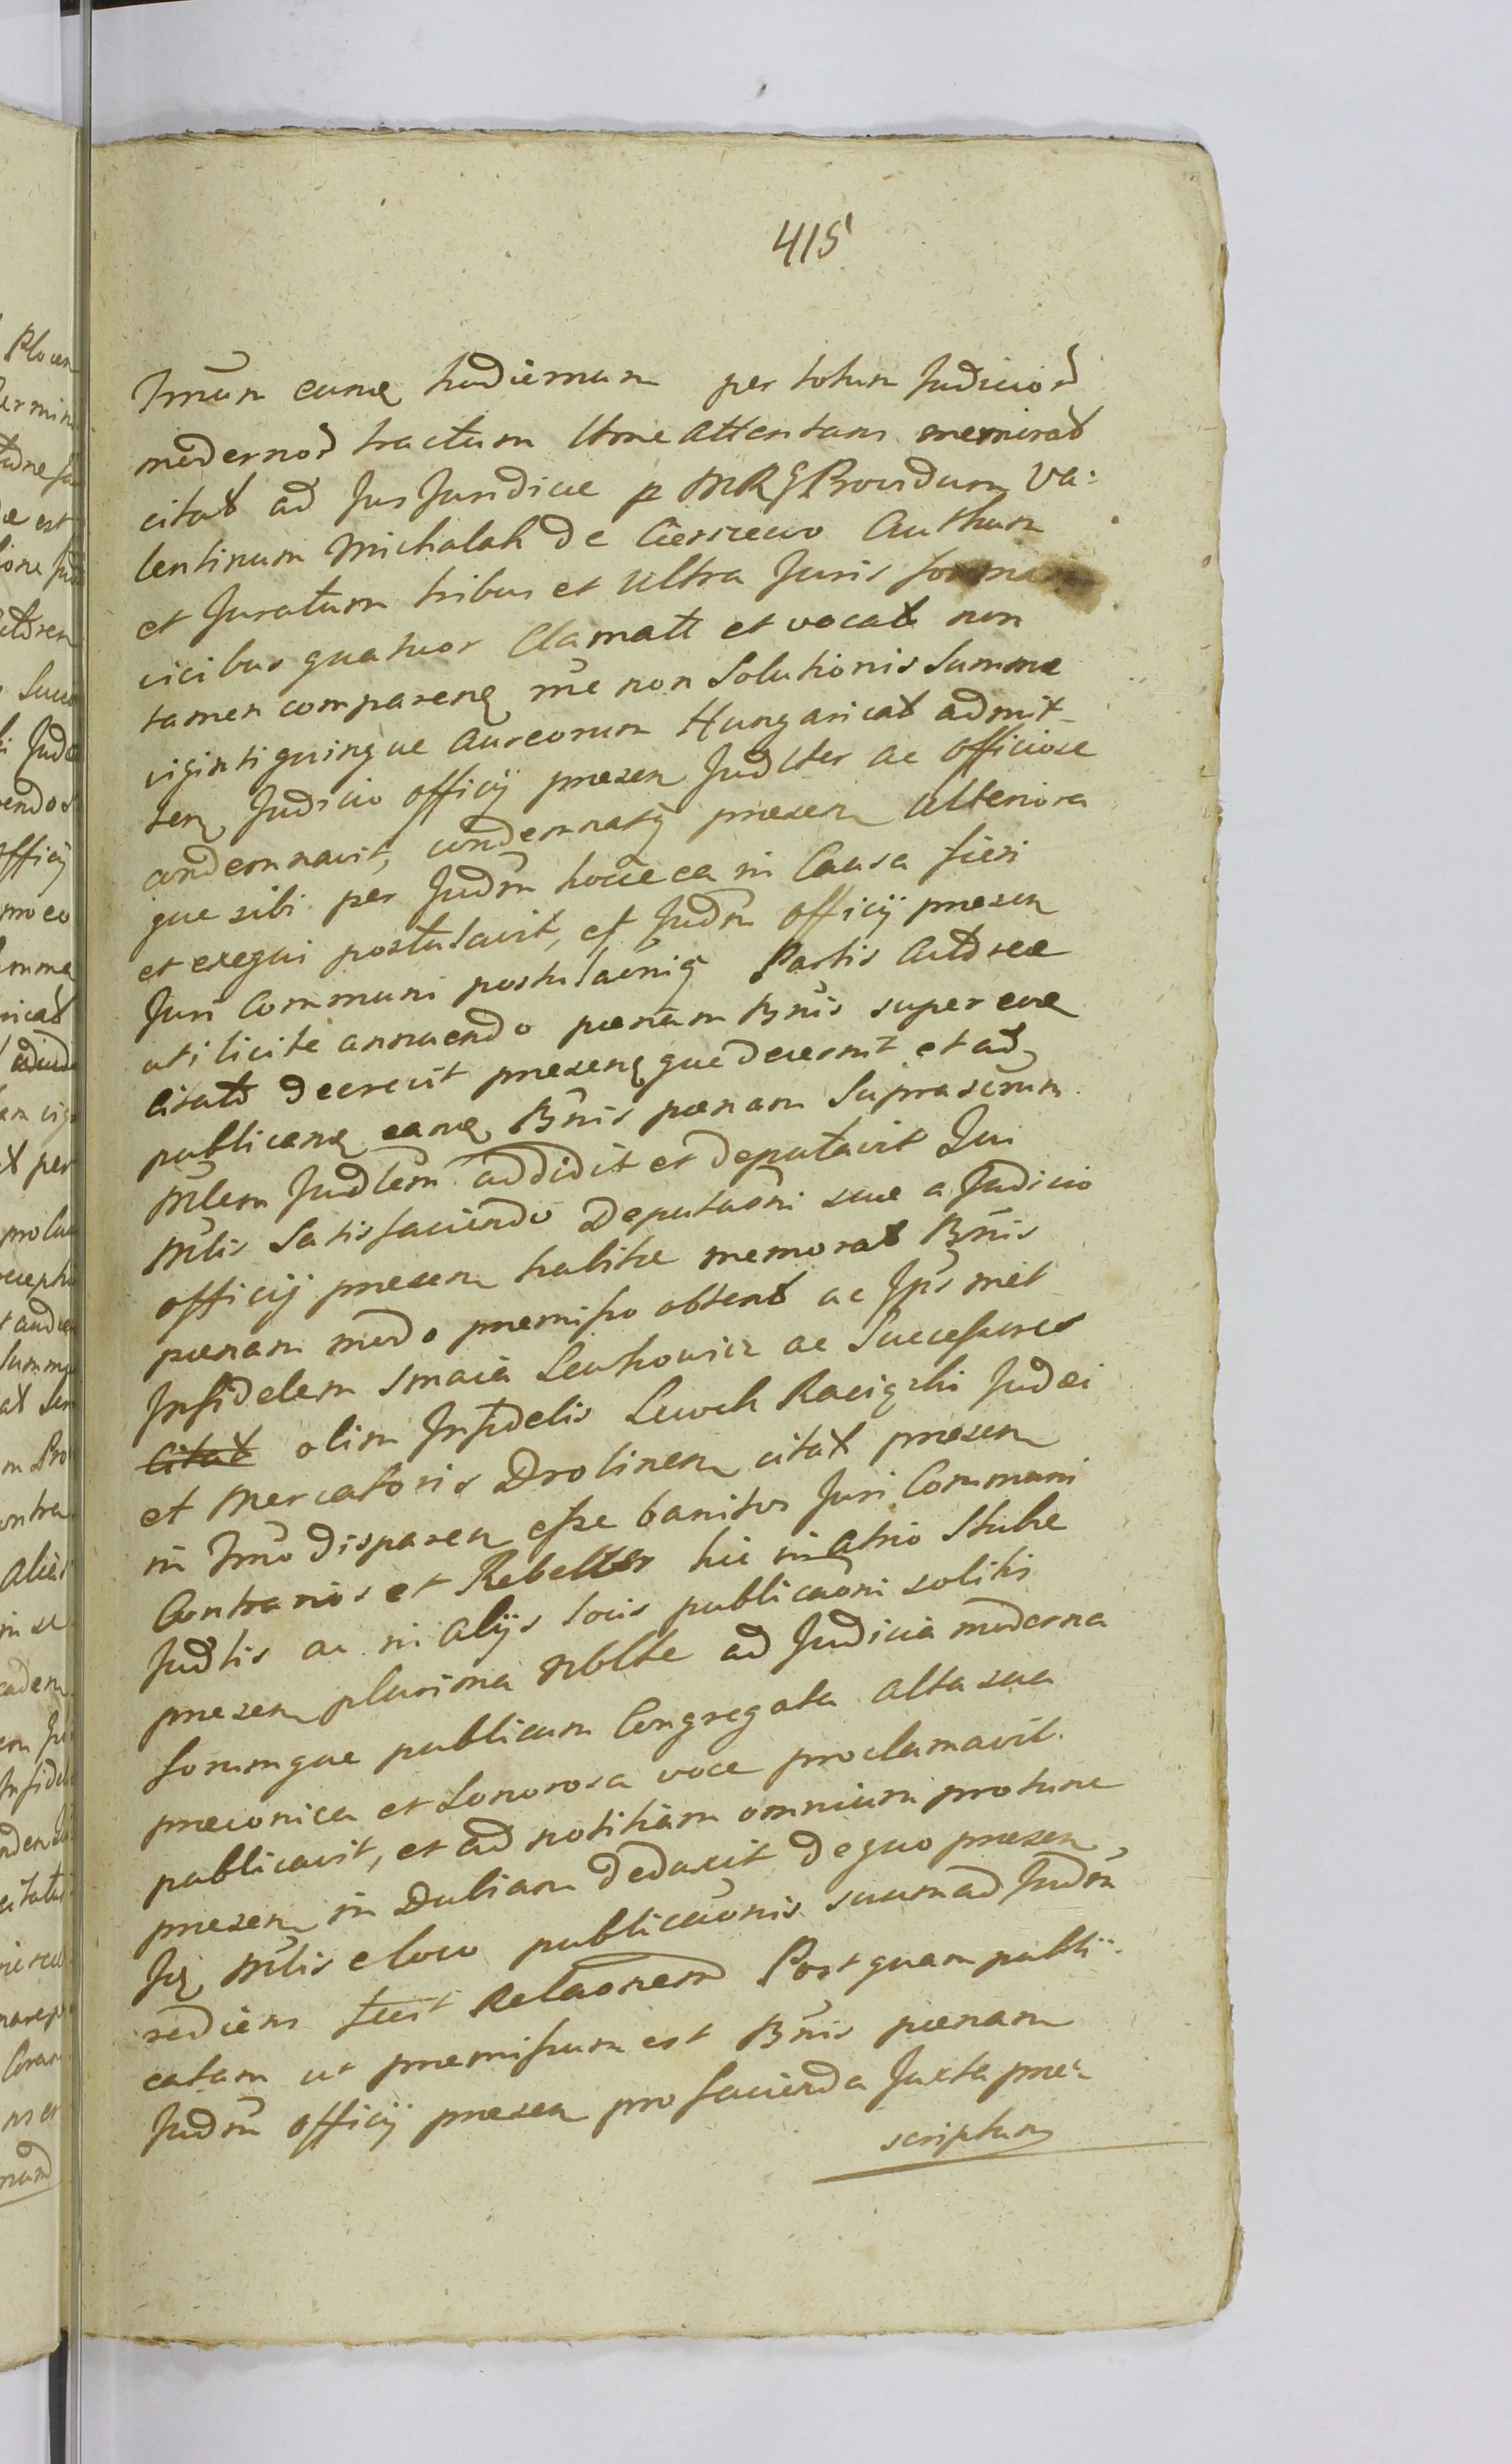 415
Tmūm eunq hodiernum per totum Judicior
modernor tractum ltme attentans memorat
citat ad Jus Juridice p MRG Providum Va:
lentinum Michalak de Cierszewo Authum
et Juratum tribus et ultra Juris forma
vicibus quatuor Clamatt et vocat non
tamen comparenq rne non Solutionis Summe
viginti quinque aureorum Hungaricat admit-
ten Judicio officij presen Judlter ac officiose
condemnavit, condemnatq presen ulteriora
que sibi per Judm hocce ea in Causa fieri
et exequi postulavit, et Judm officij presen
Juri Communi postulaonīq Partis Actoree
uti licite annuendo poenam Bnis super eve
citatt decrevit presenq que decernit et ad
publicanq eanq Bnis poenam Suprascrnm
Mlem Judlem addidit et deputavit Qui
Mlis Satisfaciendo Deputaoni sue a Judicio
officij presen habite memorat Bnis
poenam modo premisso obtent ac Ipsmet
Infidelem Smaia Lewkowicz ac Successores
citat olim Infidelis Lewek Raciązki Judei
et Mercatoris Drobinen citat presen
in Tmno disparen esse banitos Juri Communi
Contrarios et Rebelles hic in atrio Stube
Judlis ac in alijs locis publicaoni solitis
presen plurima Nblte ad Judicia moderna
forumque publicum Congregata alta sua
preconica et Sonorosa voce proclamavit
publicavit, et ad notitiam omnium protunc
presen in Dubiam deduxit de quo presen,
Iq Mlis eloco publicaonis suum ad Judm
rediens fecit Relaonem Postquam publi-
catam ut premissum est Bnis poenam
Judm officij presen profacienda Juxta pre-
scriptum